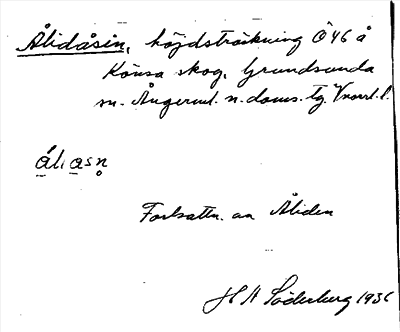 Ålidåsen, höjdsträckning Ö46 å
Könsa skog, Grundsunda
sn. Ångerml. n. doms. tg. Vnorrl. l.
ál¡asn̥
Fortsättn. av Åliden
H A Söderberg 1936